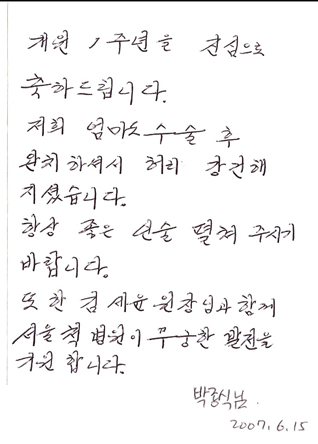 개원 1주년을 진심으로
축하드립니다.
저희 엄마도 수술 후
완치 하셔서 허리 강건해
지셨습니다.
항상 좋은 인술 펼쳐 주시기
바랍니다.
또한 김세윤 원장님과 함께
서울 척 병원이 무궁한 발전을
기원 합니다.
박종식님.
2007.6.15